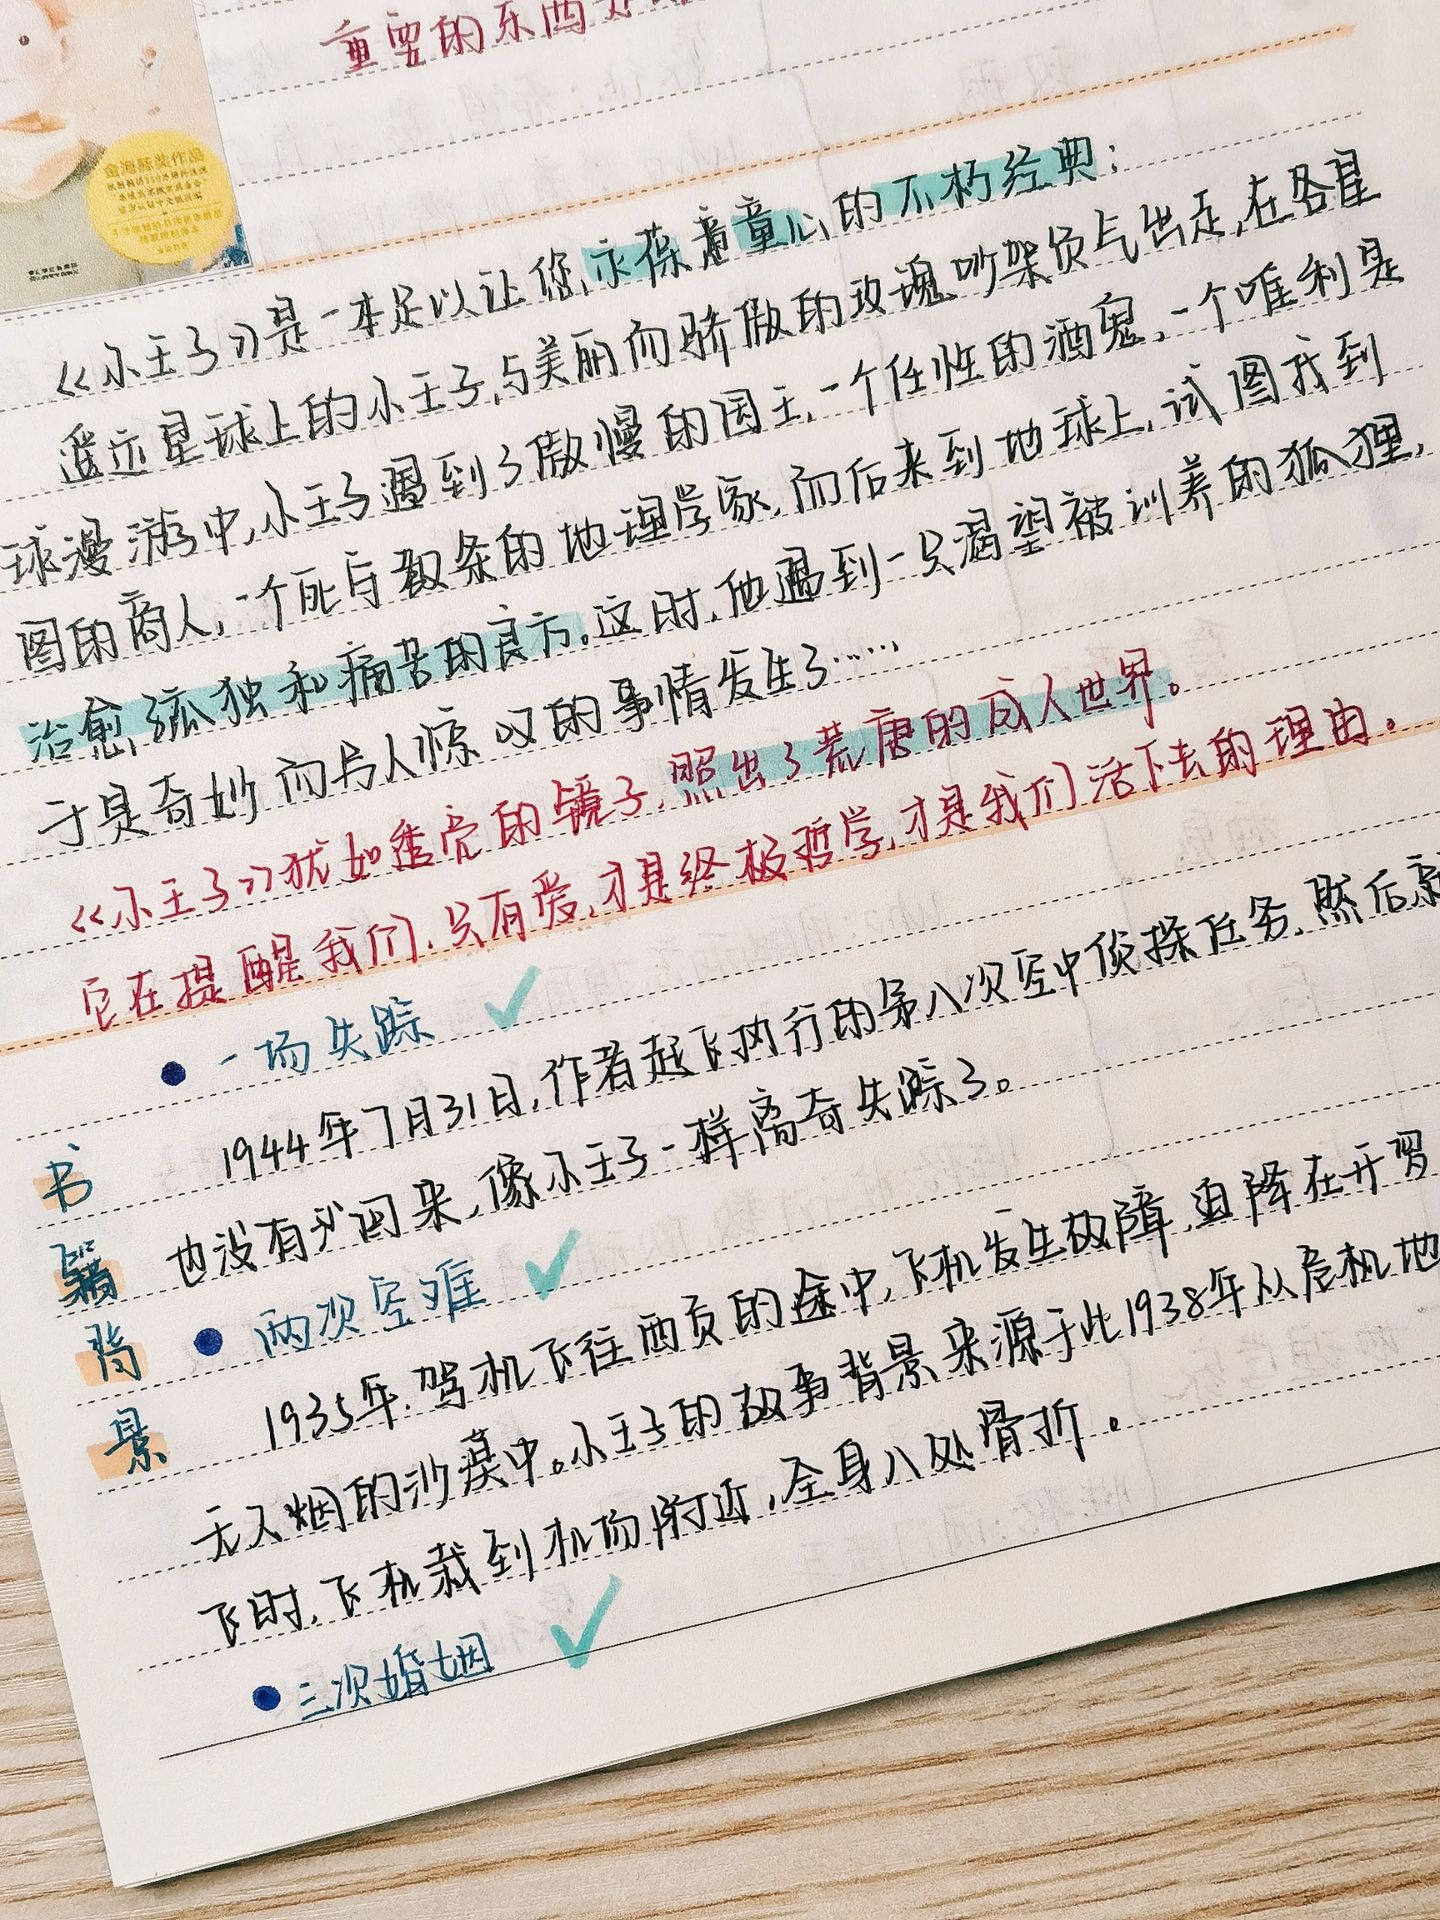 重要的东西
金海豚奖作品
《小王子》是一本足以让您永葆童童心的不朽经典：
遥远星球上的小王子，与美丽而骄傲的玫瑰吵架负气出走，在各星
球漫游中，小王子遇到了傲慢的国王，一个任性的酒鬼，一个唯利是
图的商人，一个死与教条的地理学家，而后来到地球上，试图找到
治愈孤独和痛苦的良方。这时，他遇到一只渴望被训养的狐狸，
于是奇妙而与人惊叹的事情发生了……
《小王子》犹如透亮的镜子，照出了荒唐的成人世界。
它在提醒我们，只有爱，才是终极哲学，才是我们活下去的理由。
• 一场失踪 ✓
1944年7月31日，作者起飞执行的第八次空中侦探任务，然后就
也没有飞回来，像小王子一样离奇失踪了。
• 两次空难 ✓
1935年，驾机飞往西贡的途中，飞机发生故障，迫降在开罗
无人烟的沙漠中。小王子的故事背景来源于此1938年从危机地
飞时，飞机栽到机场附近，全身八处骨折。
• 三次婚姻 ✓
书籍背景